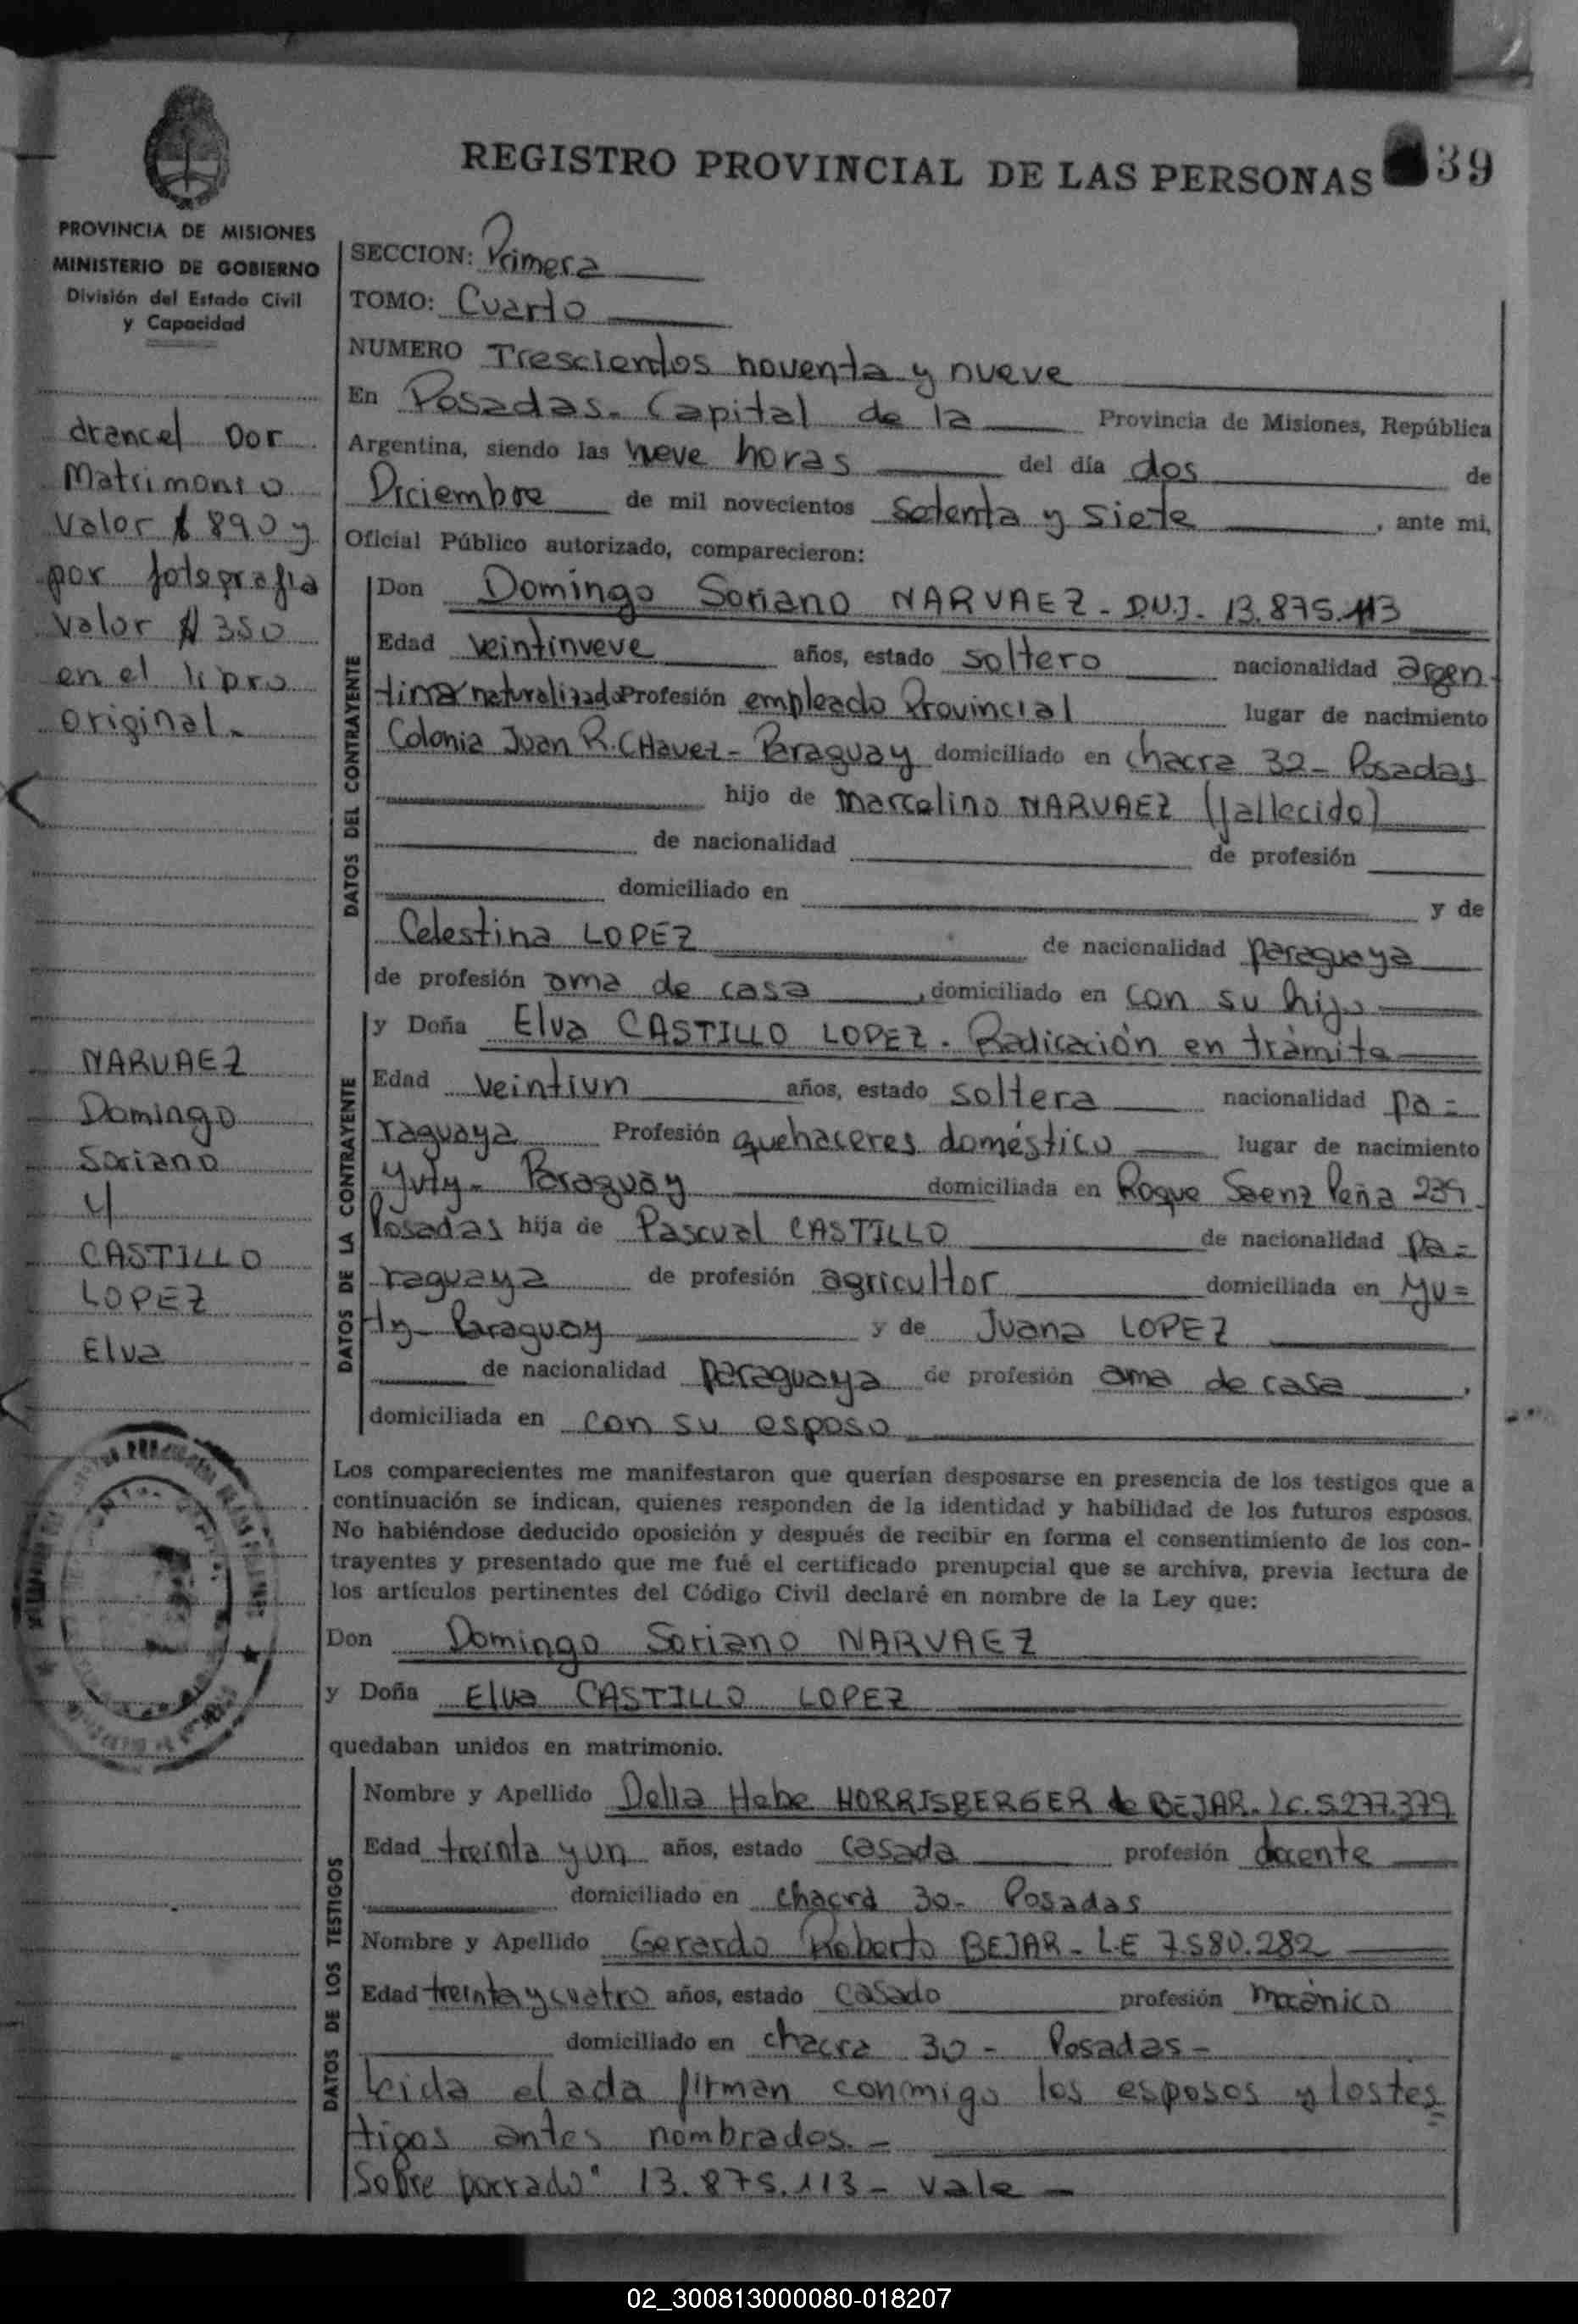 REGISTRO PROVINCIAL DE LAS PERSONAS 39
PROVINCIA DE MISIONES
MINISTERIO DE GOBIERNO
División del Estado Civil
y Capacidad
arancel por
Matrimonio
valor $ 890 y
por fotografia
valor $ 350
en el libro
original.-
NARVAEZ
Domingo
Soriano
y
CASTILLO
LOPEZ
Elva
SECCION: Primera
TOMO: Cuarto
NUMERO Trescientos noventa y nueve
En Posadas. Capital de la Provincia de Misiones, República
Argentina, siendo las nueve horas del día dos de
Diciembre de mil novecientos setenta y siete, ante mi,
Oficial Público autorizado, comparecieron:
DATOS DEL CONTRAYENTE
Don Domingo Soriano NARVAEZ - D.U.I. 13.875.113
Edad veintinueve años, estado soltero nacionalidad argen-
tina naturalizado Profesión empleado Provincial lugar de nacimiento
Colonia Juan R. CHavez - Paraguay domiciliado en chacra 32 - Posadas
hijo de Marcelino NARVAEZ (fallecido)
de nacionalidad de profesión
domiciliado en y de
Celestina LOPEZ de nacionalidad paraguaya
de profesión ama de casa, domiciliado en con su hijo
DATOS DE LA CONTRAYENTE
y Doña Elva CASTILLO LOPEZ. Radicación en trámite
Edad veintiun años, estado soltera nacionalidad pa=
raguaya Profesión quehaceres doméstico lugar de nacimiento
Yuty - Paraguay domiciliada en Roque Saenz Peña 239
Posadas hija de Pascual CASTILLO de nacionalidad pa=
raguaya de profesión agricultor domiciliada en Yu=
ty - Paraguay y de Juana LOPEZ
de nacionalidad paraguaya de profesión ama de casa,
domiciliada en con su esposo
Los comparecientes me manifestaron que querían desposarse en presencia de los testigos que a
continuación se indican, quienes responden de la identidad y habilidad de los futuros esposos.
No habiéndose deducido oposición y después de recibir en forma el consentimiento de los con-
trayentes y presentado que me fué el certificado prenupcial que se archiva, previa lectura de
los artículos pertinentes del Código Civil declaré en nombre de la Ley que:
Don Domingo Soriano NARVAEZ
y Doña Elva CASTILLO LOPEZ
quedaban unidos en matrimonio.
DATOS DE LOS TESTIGOS
Nombre y Apellido Delia Hebe HORRISBERGER de BEJAR. L.C. 5.277.379
Edad treinta y un años, estado casada profesión docente
domiciliado en chacra 30 - Posadas
Nombre y Apellido Gerardo Roberto BEJAR - L.E 7.580.282
Edad treinta y cuatro años, estado casado profesión mecánico
domiciliado en chacra 30 - Posadas -
Leida el acta firman conmigo los esposos y los tes
tigos antes nombrados. -
Sobre borrado" 13.875.113 - vale -
02_300813000080-018207